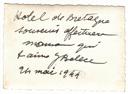 Hotel de Bretagne
souvenir affectueux
moman qui
t'aime
24 mai 1944